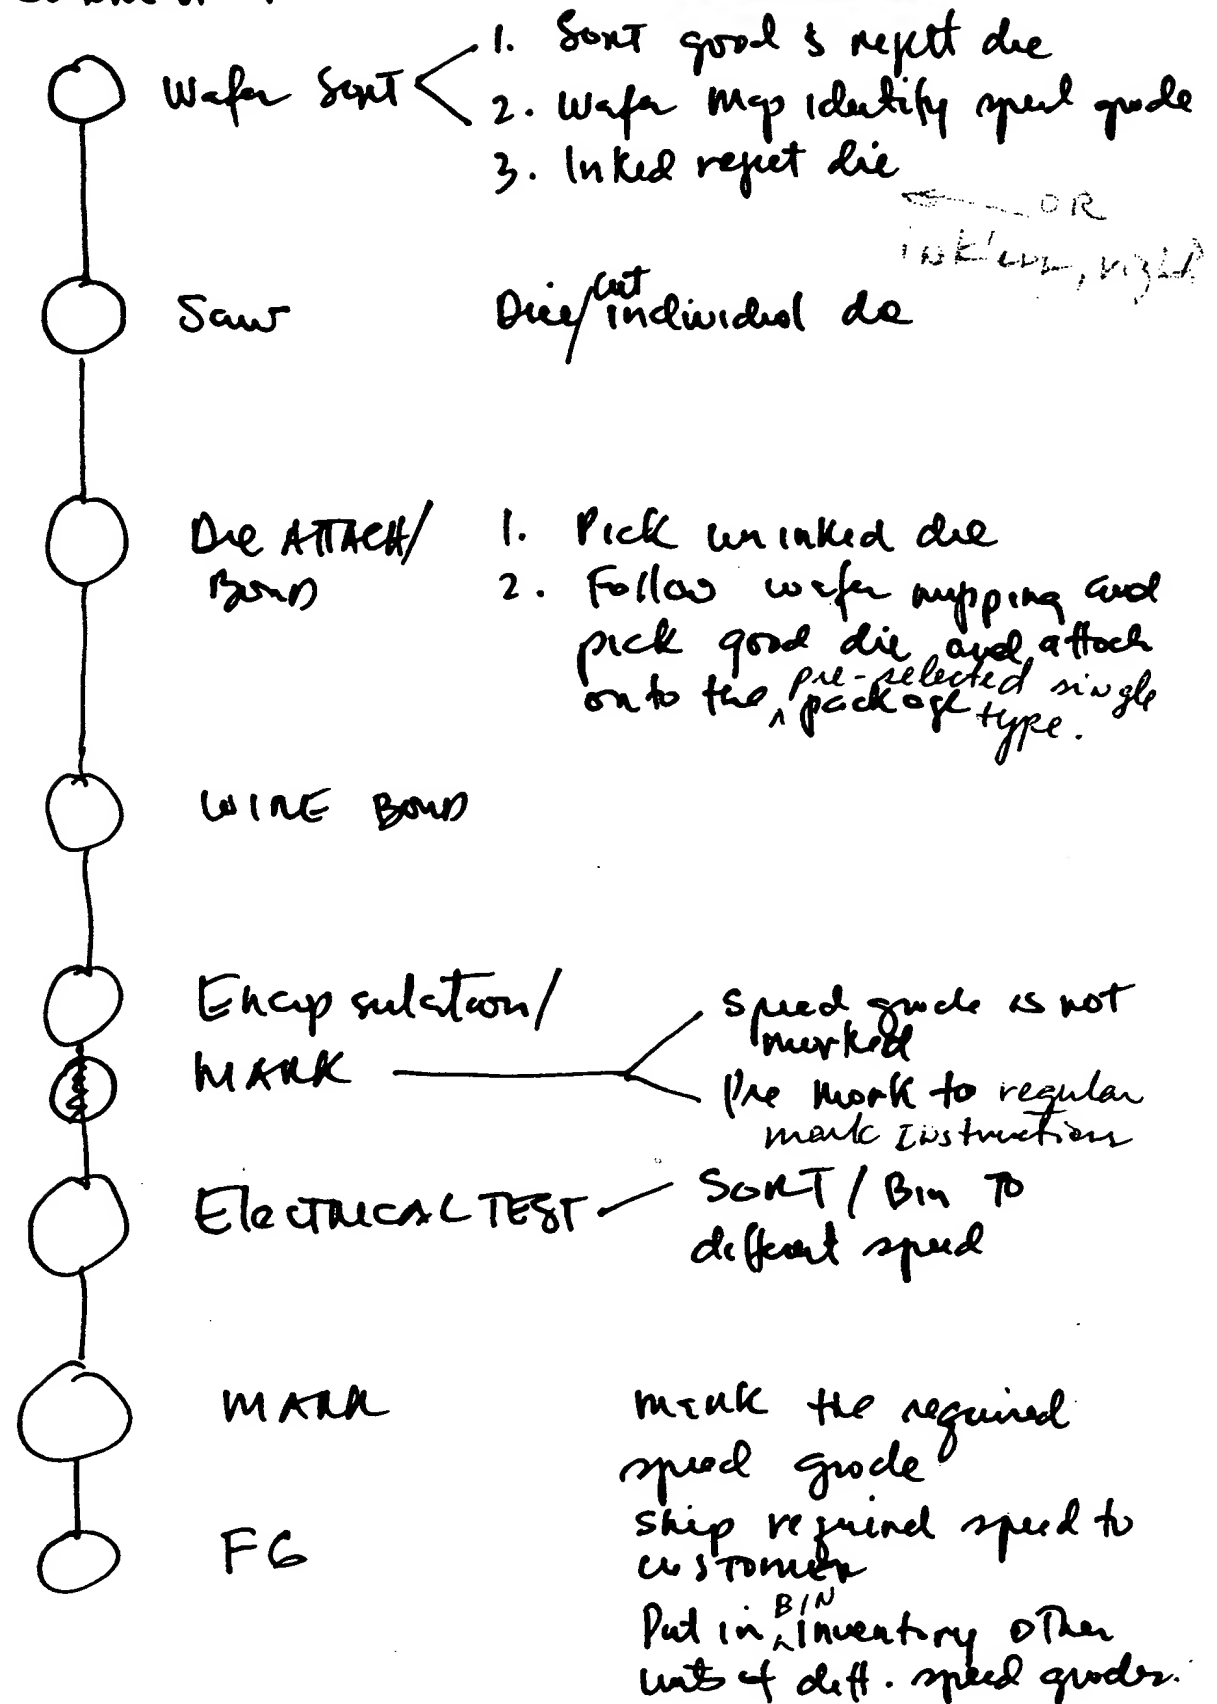 Wafer Sort
1. Sort good & reject die
2. Wafer map identify speed grade
3. Inked reject die
OR
inkless, right
Saw
Dice/cut individual die
Die ATTACH/
Bond
1. Pick un inked die
2. Follow wafer mapping and
pick good die and attach
onto the pre-selected single
package type.
WIRE BOND
Encapsulation/
MARK
Speed grade is not
marked
Pre mark to regular
mark Instructions
ElecTRICAL TEST
SORT / Bin To
different speed
MARK
Mark the required
speed grade
FG
Ship required speed to
customer
Put in BIN inventory other
units of diff. speed grades.